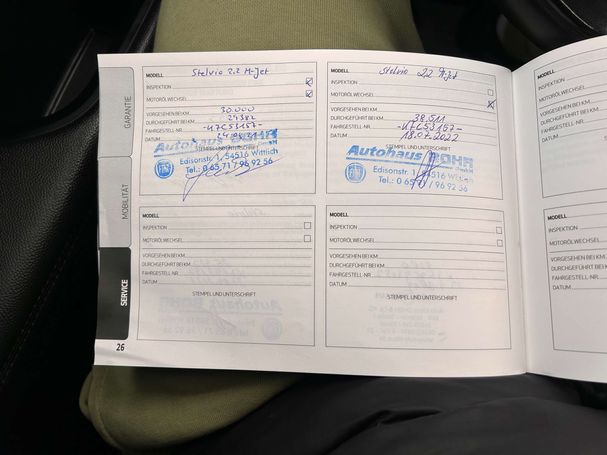 GARANTIE
MOBILITÄT
SERVICE
26
MODELL Stelvio 2.2 M-Jet
INSPEKTION
MOTORÖLWECHSEL
VORGESEHEN BEI KM 30.000
DURCHGEFÜHRT BEI KM
FAHRGESTELL-NR.
DATUM
STEMPEL UND UNTERSCHRIFT
Autohaus
Edisonstr. 1, 54516 Wittlich
Tel.: 0 65 71 / 96 92 56
MODELL Stelvio 2.2 M-Jet
INSPEKTION
MOTORÖLWECHSEL
VORGESEHEN BEI KM
DURCHGEFÜHRT BEI KM 38.511
FAHRGESTELL-NR.
DATUM 18.07.2022
STEMPEL UND UNTERSCHRIFT
Autohaus BOHR
Edisonstr. 1, 54516 Wittlich
Tel.: 0 65 71 / 96 92 56
MODELL
INSPEKTION
MOTORÖLWECHSEL
VORGESEHEN BEI KM
DURCHGEFÜHRT BEI KM
FAHRGESTELL-NR.
DATUM
STEMPEL UND UNTERSCHRIFT
MODELL
INSPEKTION
MOTORÖLWECHSEL
VORGESEHEN BEI KM
DURCHGEFÜHRT BEI KM
FAHRGESTELL-NR.
DATUM
STEMPEL UND UNTERSCHRIFT
MODELL
INSPEKTION
MOTORÖLWECHSEL
VORGESEHEN BEI KM
DURCHGEFÜHRT BEI KM
FAHRGESTELL-NR.
DATUM
MODELL
INSPEKTION
MOTORÖLWECHSEL
VORGESEHEN BEI KM
DURCHGEFÜHRT BEI
FAHRGESTELL-NR.
DATUM